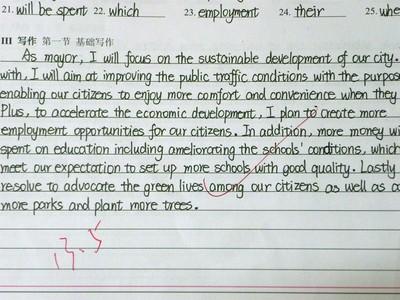 21. will be spent 22. which 23. employment 24. their 25. whe
III 写作 第一节 基础写作
As mayor, I will focus on the sustainable development of our city.
with, I will aim at improving the public traffic conditions with the purpose
enabling our citizens to enjoy more comfort and convenience when they
Plus, to accelerate the economic development, I plan to create more
employment opportunities for our citizens. In addition, more money wi
spent on education including ameliorating the schools' conditions, which
meet our expectation to set up more schools with good quality. Lastly
resolve to advocate the green lives among our citizens as well as c
more parks and plant more trees.
13.5